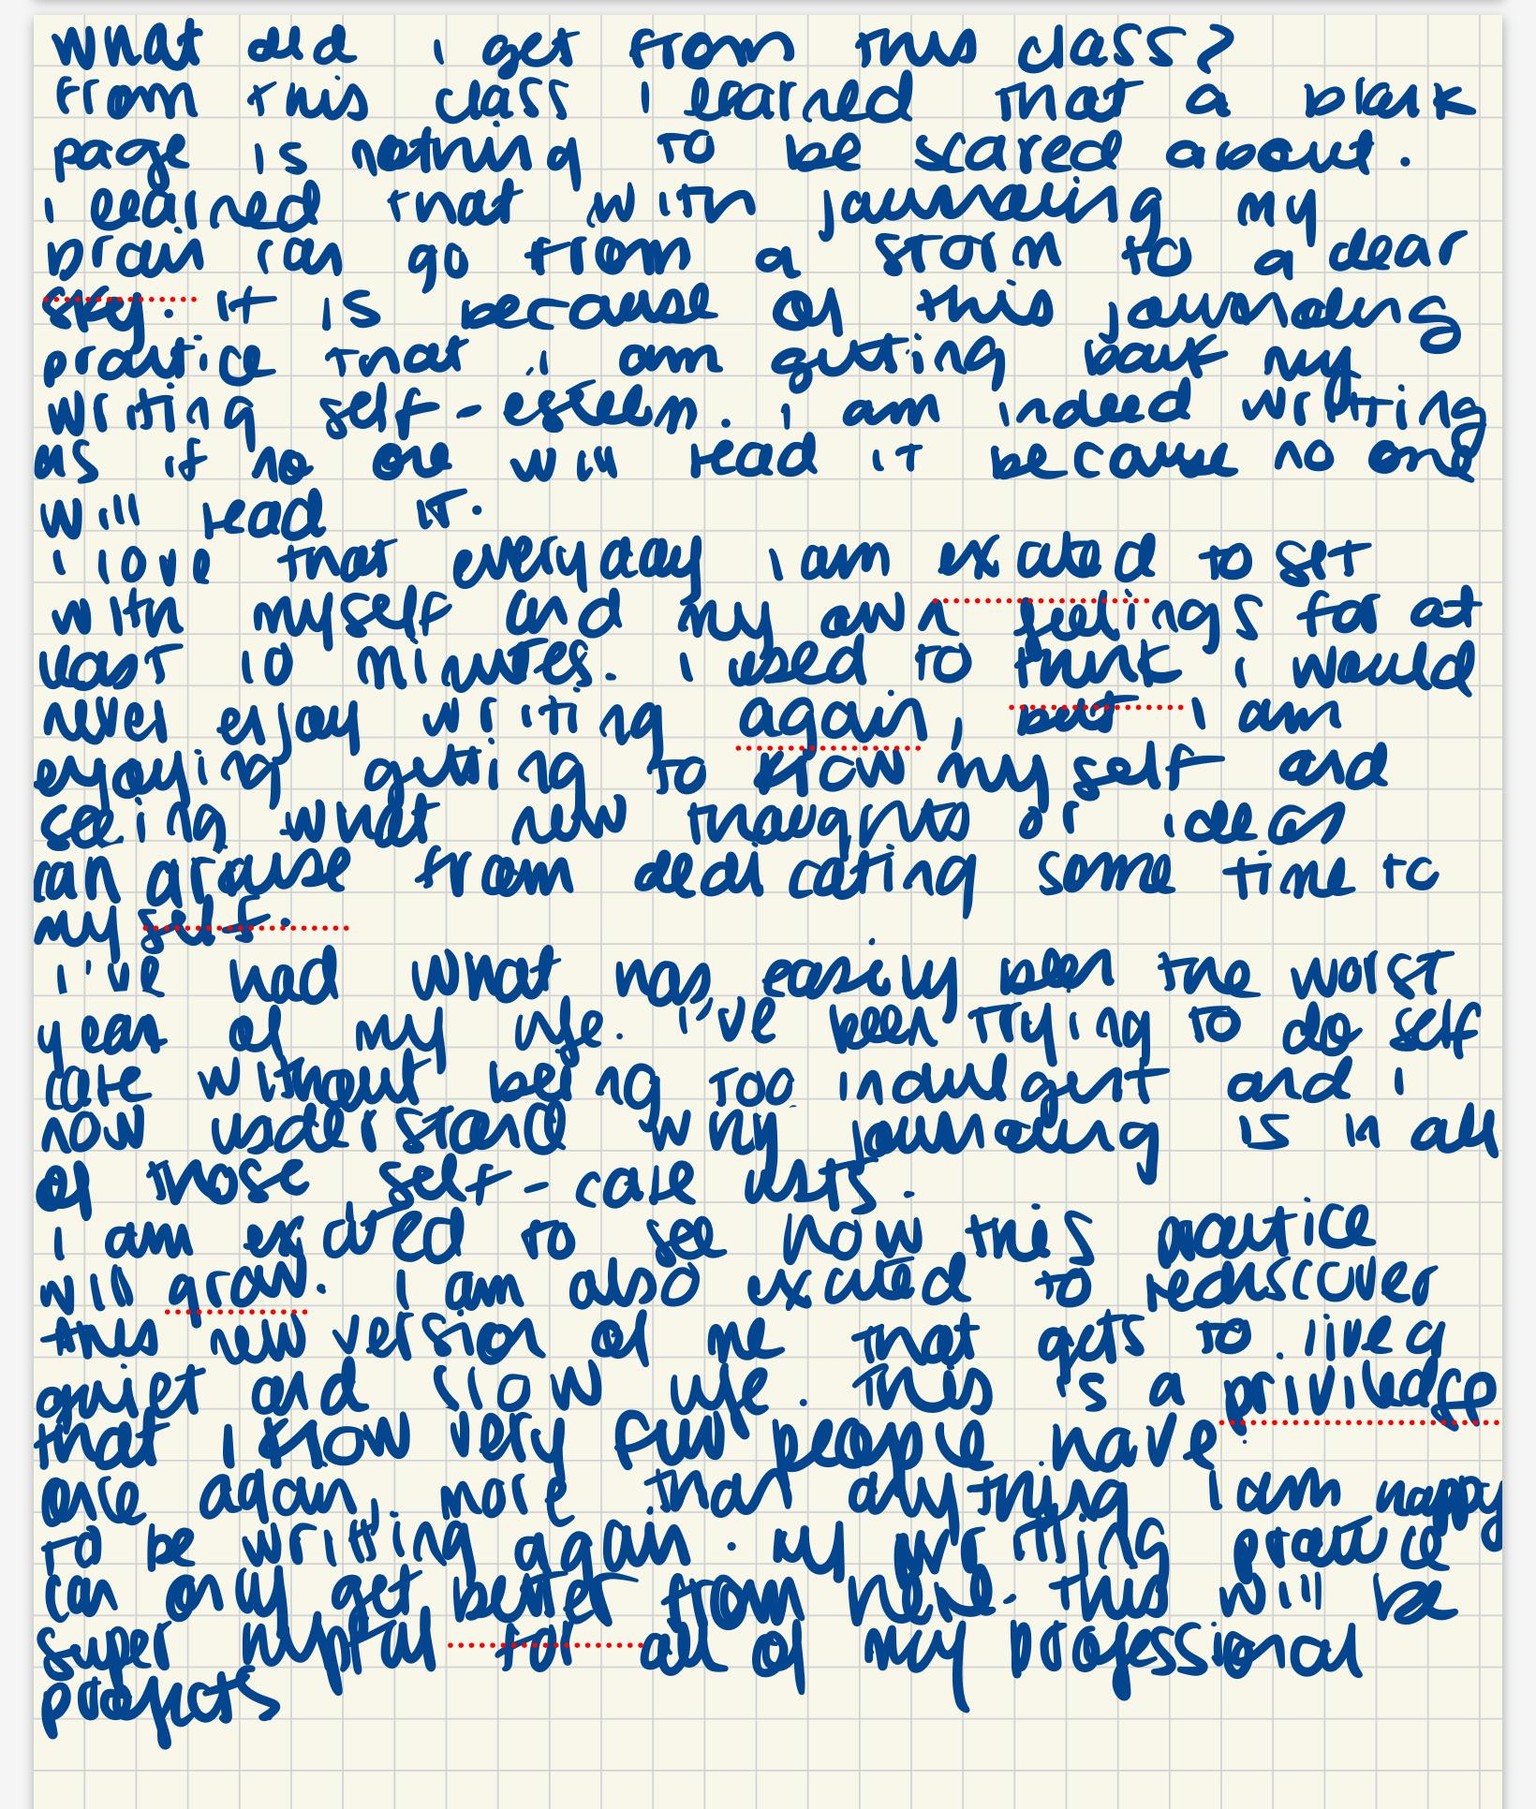 What did i get from this class?
From this class i learned that a blank
page is nothing to be scared about.
i learned that with journaling my
brain can go from a storm to a clear
sky. it is because of this journaling
practice that i am getting back my
writing self-esteem. i am indeed writting
as if no one will read it because no one
will read it.
i love that everyday i am excited to set
with myself and my own feelings for at
least 10 minutes. i used to think i would
never enjoy writing again, but i am
enjoying getting to know myself and
seeing what new thoughts or ideas
can arouse from dedicating some time to
my self.
i've had what has easily been the worst
year of my life. i've been trying to do self
care without being too indulgent and i
now understand why journaling is in all
of those self-care lists.
i am excited to see how this practice
will grow. i am also excited to rediscover
this new version of me that gets to live a
quiet and slow life. This is a priviledge
that i know very few people have.
once again, more than anything i am happy
to be writting again. my writting practice
can only get better from here. this will be
super helpful for all of my professional
projects